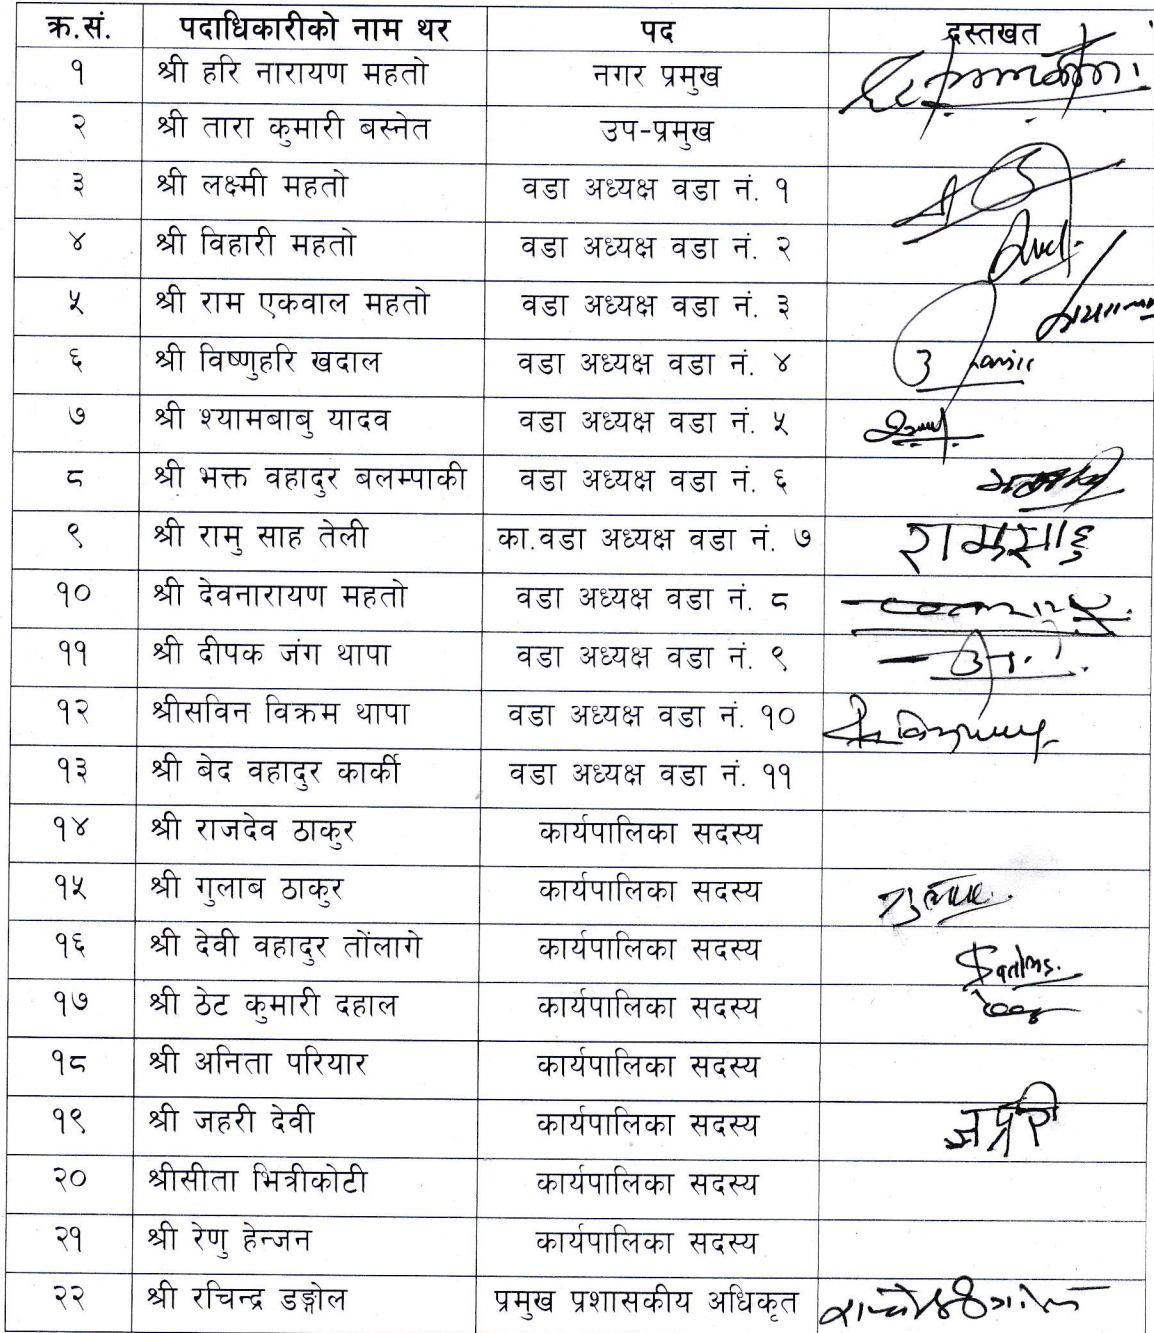 क्र.सं. पदाधिकारीको नाम थर पद दस्तखत
१ श्री हरि नारायण महतो नगर प्रमुख
२ श्री तारा कुमारी बस्नेत उप-प्रमुख
३ श्री लक्ष्मी महतो वडा अध्यक्ष वडा नं. १
४ श्री विहारी महतो वडा अध्यक्ष वडा नं. २
५ श्री राम एकवाल महतो वडा अध्यक्ष वडा नं. ३
६ श्री विष्णुहरि खदाल वडा अध्यक्ष वडा नं. ४
७ श्री श्यामबाबु यादव वडा अध्यक्ष वडा नं. ५
८ श्री भक्त वहादुर बलम्पाकी वडा अध्यक्ष वडा नं. ६
९ श्री रामु साह तेली का.वडा अध्यक्ष वडा नं. ७ रामुसाहु
१० श्री देवनारायण महतो वडा अध्यक्ष वडा नं. ८
११ श्री दीपक जंग थापा वडा अध्यक्ष वडा नं. ९
१२ श्रीसविन विक्रम थापा वडा अध्यक्ष वडा नं. १०
१३ श्री बेद वहादुर कार्की वडा अध्यक्ष वडा नं. ११
१४ श्री राजदेव ठाकुर कार्यपालिका सदस्य
१५ श्री गुलाब ठाकुर कार्यपालिका सदस्य
१६ श्री देवी वहादुर तोंलागे कार्यपालिका सदस्य
१७ श्री ठेट कुमारी दहाल कार्यपालिका सदस्य
१८ श्री अनिता परियार कार्यपालिका सदस्य
१९ श्री जहरी देवी कार्यपालिका सदस्य
२० श्रीसीता भित्रीकोटी कार्यपालिका सदस्य
२१ श्री रेणु हेन्जन कार्यपालिका सदस्य
२२ श्री रचिन्द्र डङ्गोल प्रमुख प्रशासकीय अधिकृत